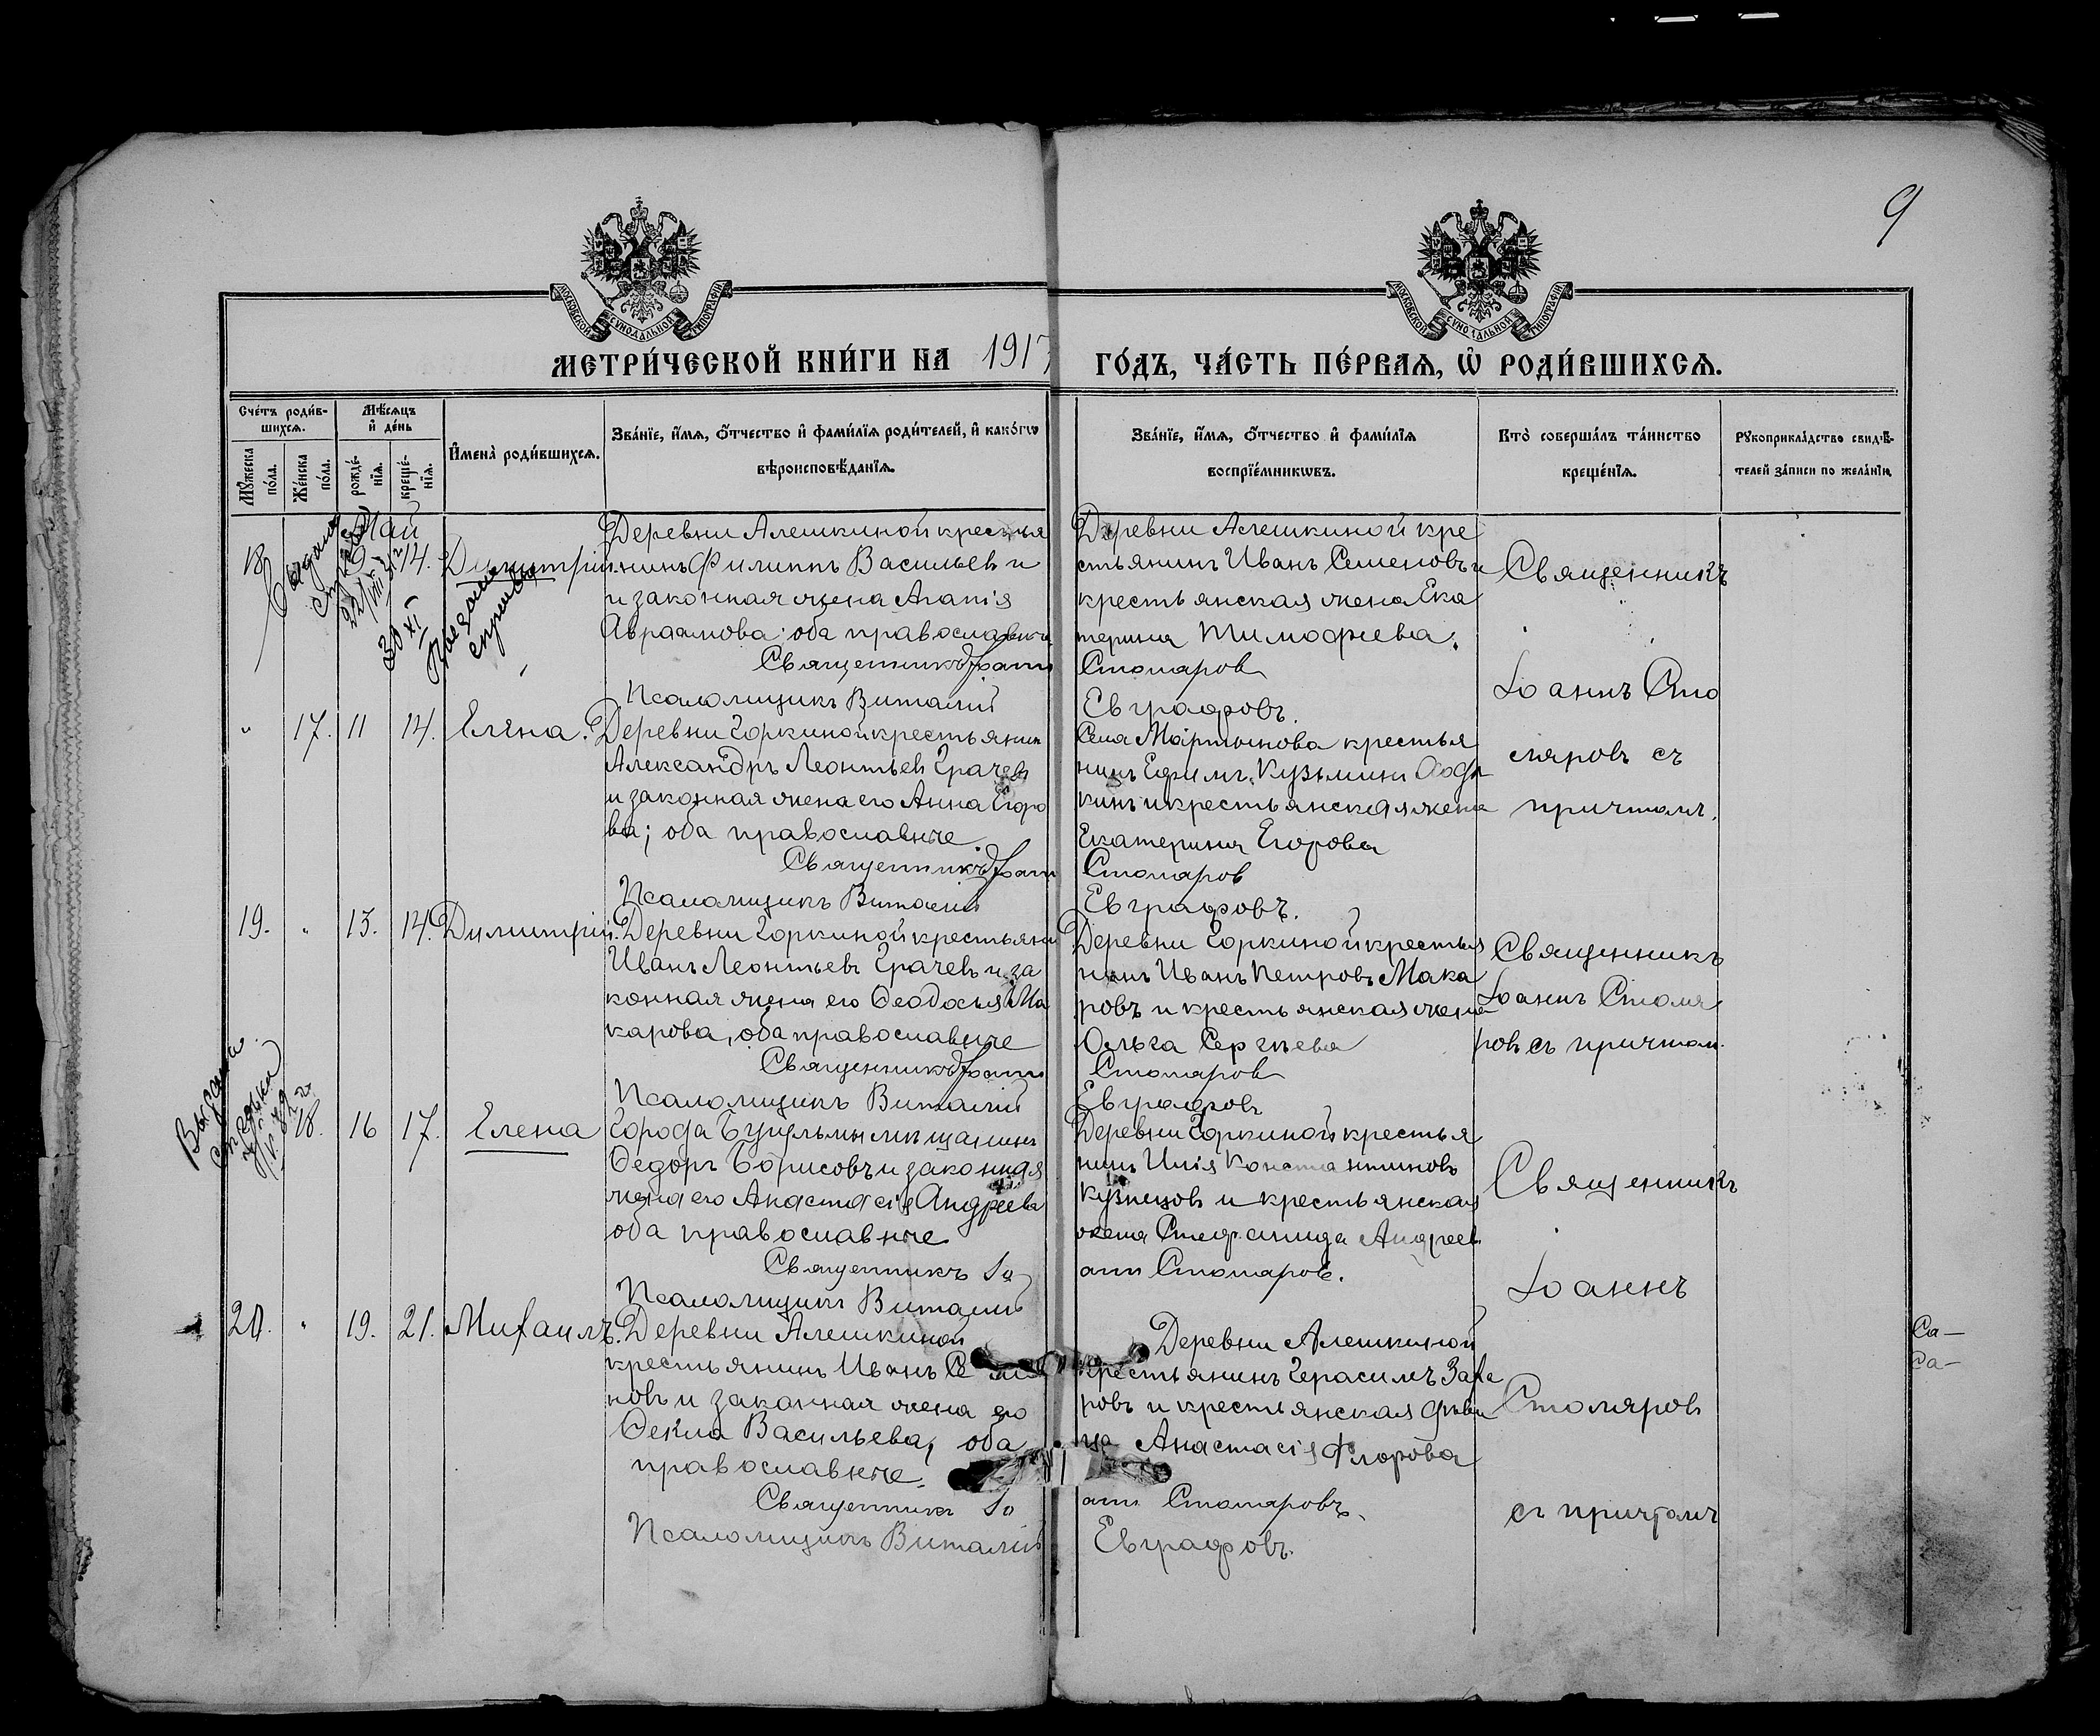 9
МОСКОВСКОЙ СУНОДАЛЬНОЙ ТИПОГРАФІИ
МОСКОВСКОЙ СУНОДАЛЬНОЙ ТИПОГРАФІИ
МЕТРИ́ЧЕСКОЙ КНИ́ГИ НА 1917 ГО́ДЪ, ЧА́СТЬ ПЕ́РВАЯ, Ѡ҆ РОДИ́ВШИХСЯ.
Сче́тъ роди́в-
шихся.
Мѣ́сяцъ
и҆ де́нь
И҆мена̀ роди́вшихся.
Зва́нїе, и҆́мя, ѻ҆́тчество и҆ фами́лїя роди́телей, и҆ како́гѡ
вѣроисповѣ́данїя.
Зва́нїе, и҆́мя, ѻ҆́тчество и҆ фами́лїя
воспрїе́мникѡвъ.
Кто̀ соверша́лъ та́инство
креще́нїя.
Рꙋкоприкла́дство свидѣ́-
телей за́писи по жела́нїю.
Мꙋ́жеска
по́ла.
Же́нска
по́ла.
рожде́-
нїя.
креще́-
нїя.
Май
18 14. Димитрій.
Деревни Алешкиной крестья
нинъ Филиппъ Васильев и
и законная жена Агапія
Авраамова; оба православные
Священникъ Іоаннъ
Псаломщикъ Виталий
Деревни Алешкиной кре
стьянинъ Иванъ Семеновъ и
крестьянская жена Ека
терина Тимофиева;
Столяров
Евграфовъ.
Священникъ
Іоаннъ Сто
ляровъ съ
причтомъ.
" 17. 11 14. Елена.
Деревни Горкиной крестьянин
Александръ Леонтьев Грачев
и законная жена его Анна Егоро
ва; оба православные
Священникъ Іоаннъ
Псаломщикъ Виталий
Села Мартынова крестья
нинъ Ефимъ Кузьмин
кинъ и крестьянская жена
Екатерина Егорова
Столяров
Евграфовъ.
19. " 13. 14. Димитрій.
Деревни Горкиной крестьянин
Иванъ Леонтьевъ Грачевъ и за
конная жена его Ѳеодосья Ма
карова, оба православные
Священникъ Іоаннъ
Псаломщикъ Виталий
Деревни Горкиной крестья
нинъ Иванъ Петровъ Мака
ровъ и крестьянская жена
Ольга Сергѣева
Столяров
Евграфовъ
Священникъ
Іоаннъ Столя
ровъ съ причтом.
18. 16 17. Елена
Города Бугульмы мѣщанинъ
Ѳедоръ Борисовъ и законная
жена его Анастасія Андреева
оба православные
Священникъ Іо
Псаломщикъ Виталий
Деревни Горкиной крестья
нинъ Илія Константиновъ
Кузнецовъ и крестьянская
жена Стефанида Андреев
анн Столяровъ.
Священникъ
Іоаннъ
20. " 19. 21. Михаилъ.
Деревни Алешкиной
крестьянинъ Иванъ
новъ и законная жена его
Ѳекла Васильева, оба
православные.
Священникъ Іо
Псаломщикъ Виталий
Деревни Алешкиной
крестьянинъ Герасимъ Заха
ровъ и крестьянская дѣви
ца Анастасія Флорова
анн Столяровъ.
Евграфовъ.
Столяровъ
съ причтомъ
Са—
Са—